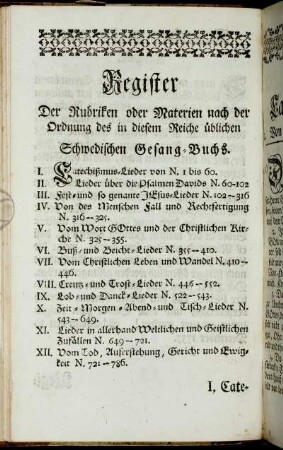 Register
Der Rubriken oder Materien nach der
Ordnung des in diesem Reiche üblichen
Schwedischen Gesang-Buchs.
I. Catechißmus-Lieder von N. 1 bis 60.
II. Lieder über die Psalmen Davids N. 60-102
III. Fest- und so genante JEsus-Lieder N. 102-316
IV. Von des Menschen Fall und Rechtfertigung
N. 316-325.
V. Vom Wort GOttes und der Christlichen Kir-
che N. 325-355.
VI. Buß- und Beicht-Lieder N. 355-410.
VII. Vom Christlichen Leben und Wandel N. 410-
446.
VIII. Creutz- und Trost-Lieder N. 446-522.
IX. Lob- und Danck-Lieder N. 522-543.
X. Zeit-Morgen-Abend- und Tisch-Lieder N.
543-649.
XI. Lieder in allerhand Weltlichen und Geistlichen
Zufällen N. 649-721.
XII. Vom Tod, Auferstehung, Gericht und Ewig-
keit N. 721-786.
I. Cate-